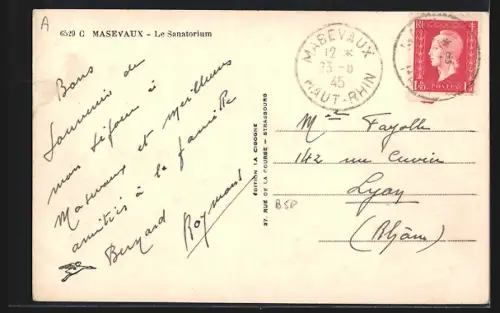 A
6529 C MASEVAUX - Le Sanatorium
Bons
Souvenirs de
mon séjour à
Masevaux et meilleures
amitiés à la famille
Bernard
Raymond
EDITION LA CIGOGNE
37, RUE DE LA COURSE - STRASBOURG
MASEVAUX
12 *
45
HAUT-RHIN
POSTES
Mme Fayolle
142 rue Cuvier
Lyon
(Rhône)
BSD